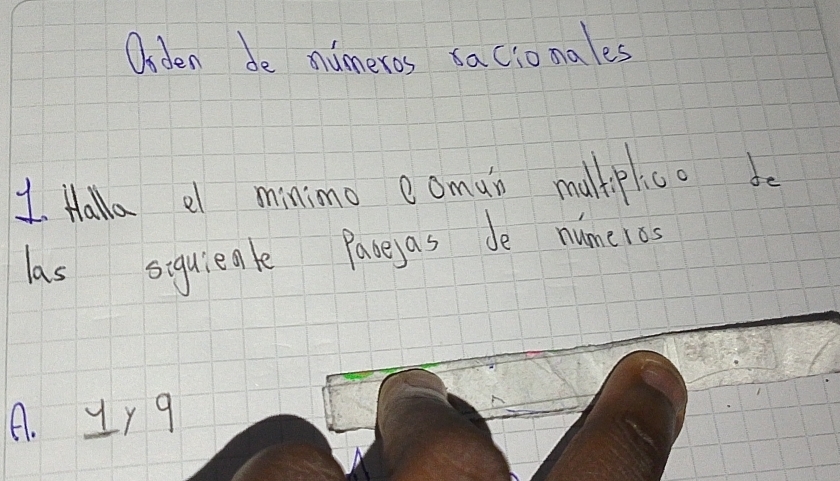 Orden de números racionales
1. Halla el minimo común multiplico de
las siguiente Parejas de números
A. 4 y 9